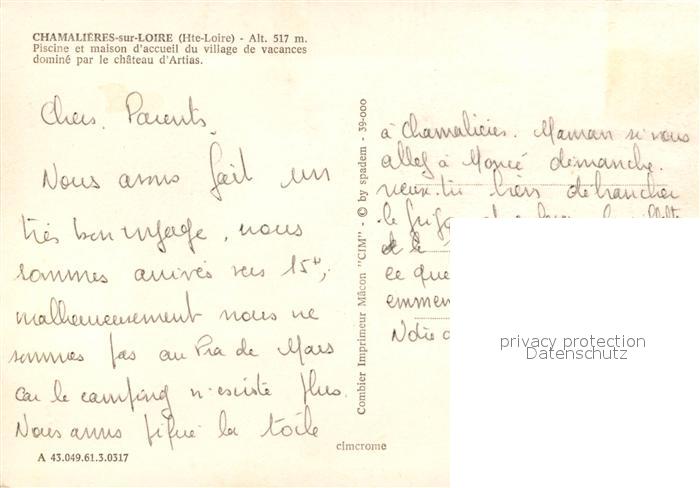 CHAMALIÈRES-sur-LOIRE (Hte-Loire) - Alt. 517 m.
Piscine et maison d'accueil du village de vacances
dominé par le château d'Artias.
Chers Parents,
Nous avons fait un
très bon voyage, nous
sommes arrivés vers 15h,
malheureusement nous ne
sommes pas au Pra de Mars
car le camping n'existe plus.
Nous avons piqué la toile
A 43.049.61.3.0317
Combier Imprimeur Mâcon "CIM" - © by spadem - 39-000
cimcrome
à Chamalières. Maman si vous
allez à Moncé dimanche.
veux-tu bien débrancher
le frigo
et le
ce que
emmen
Notre
privacy protection
Datenschutz